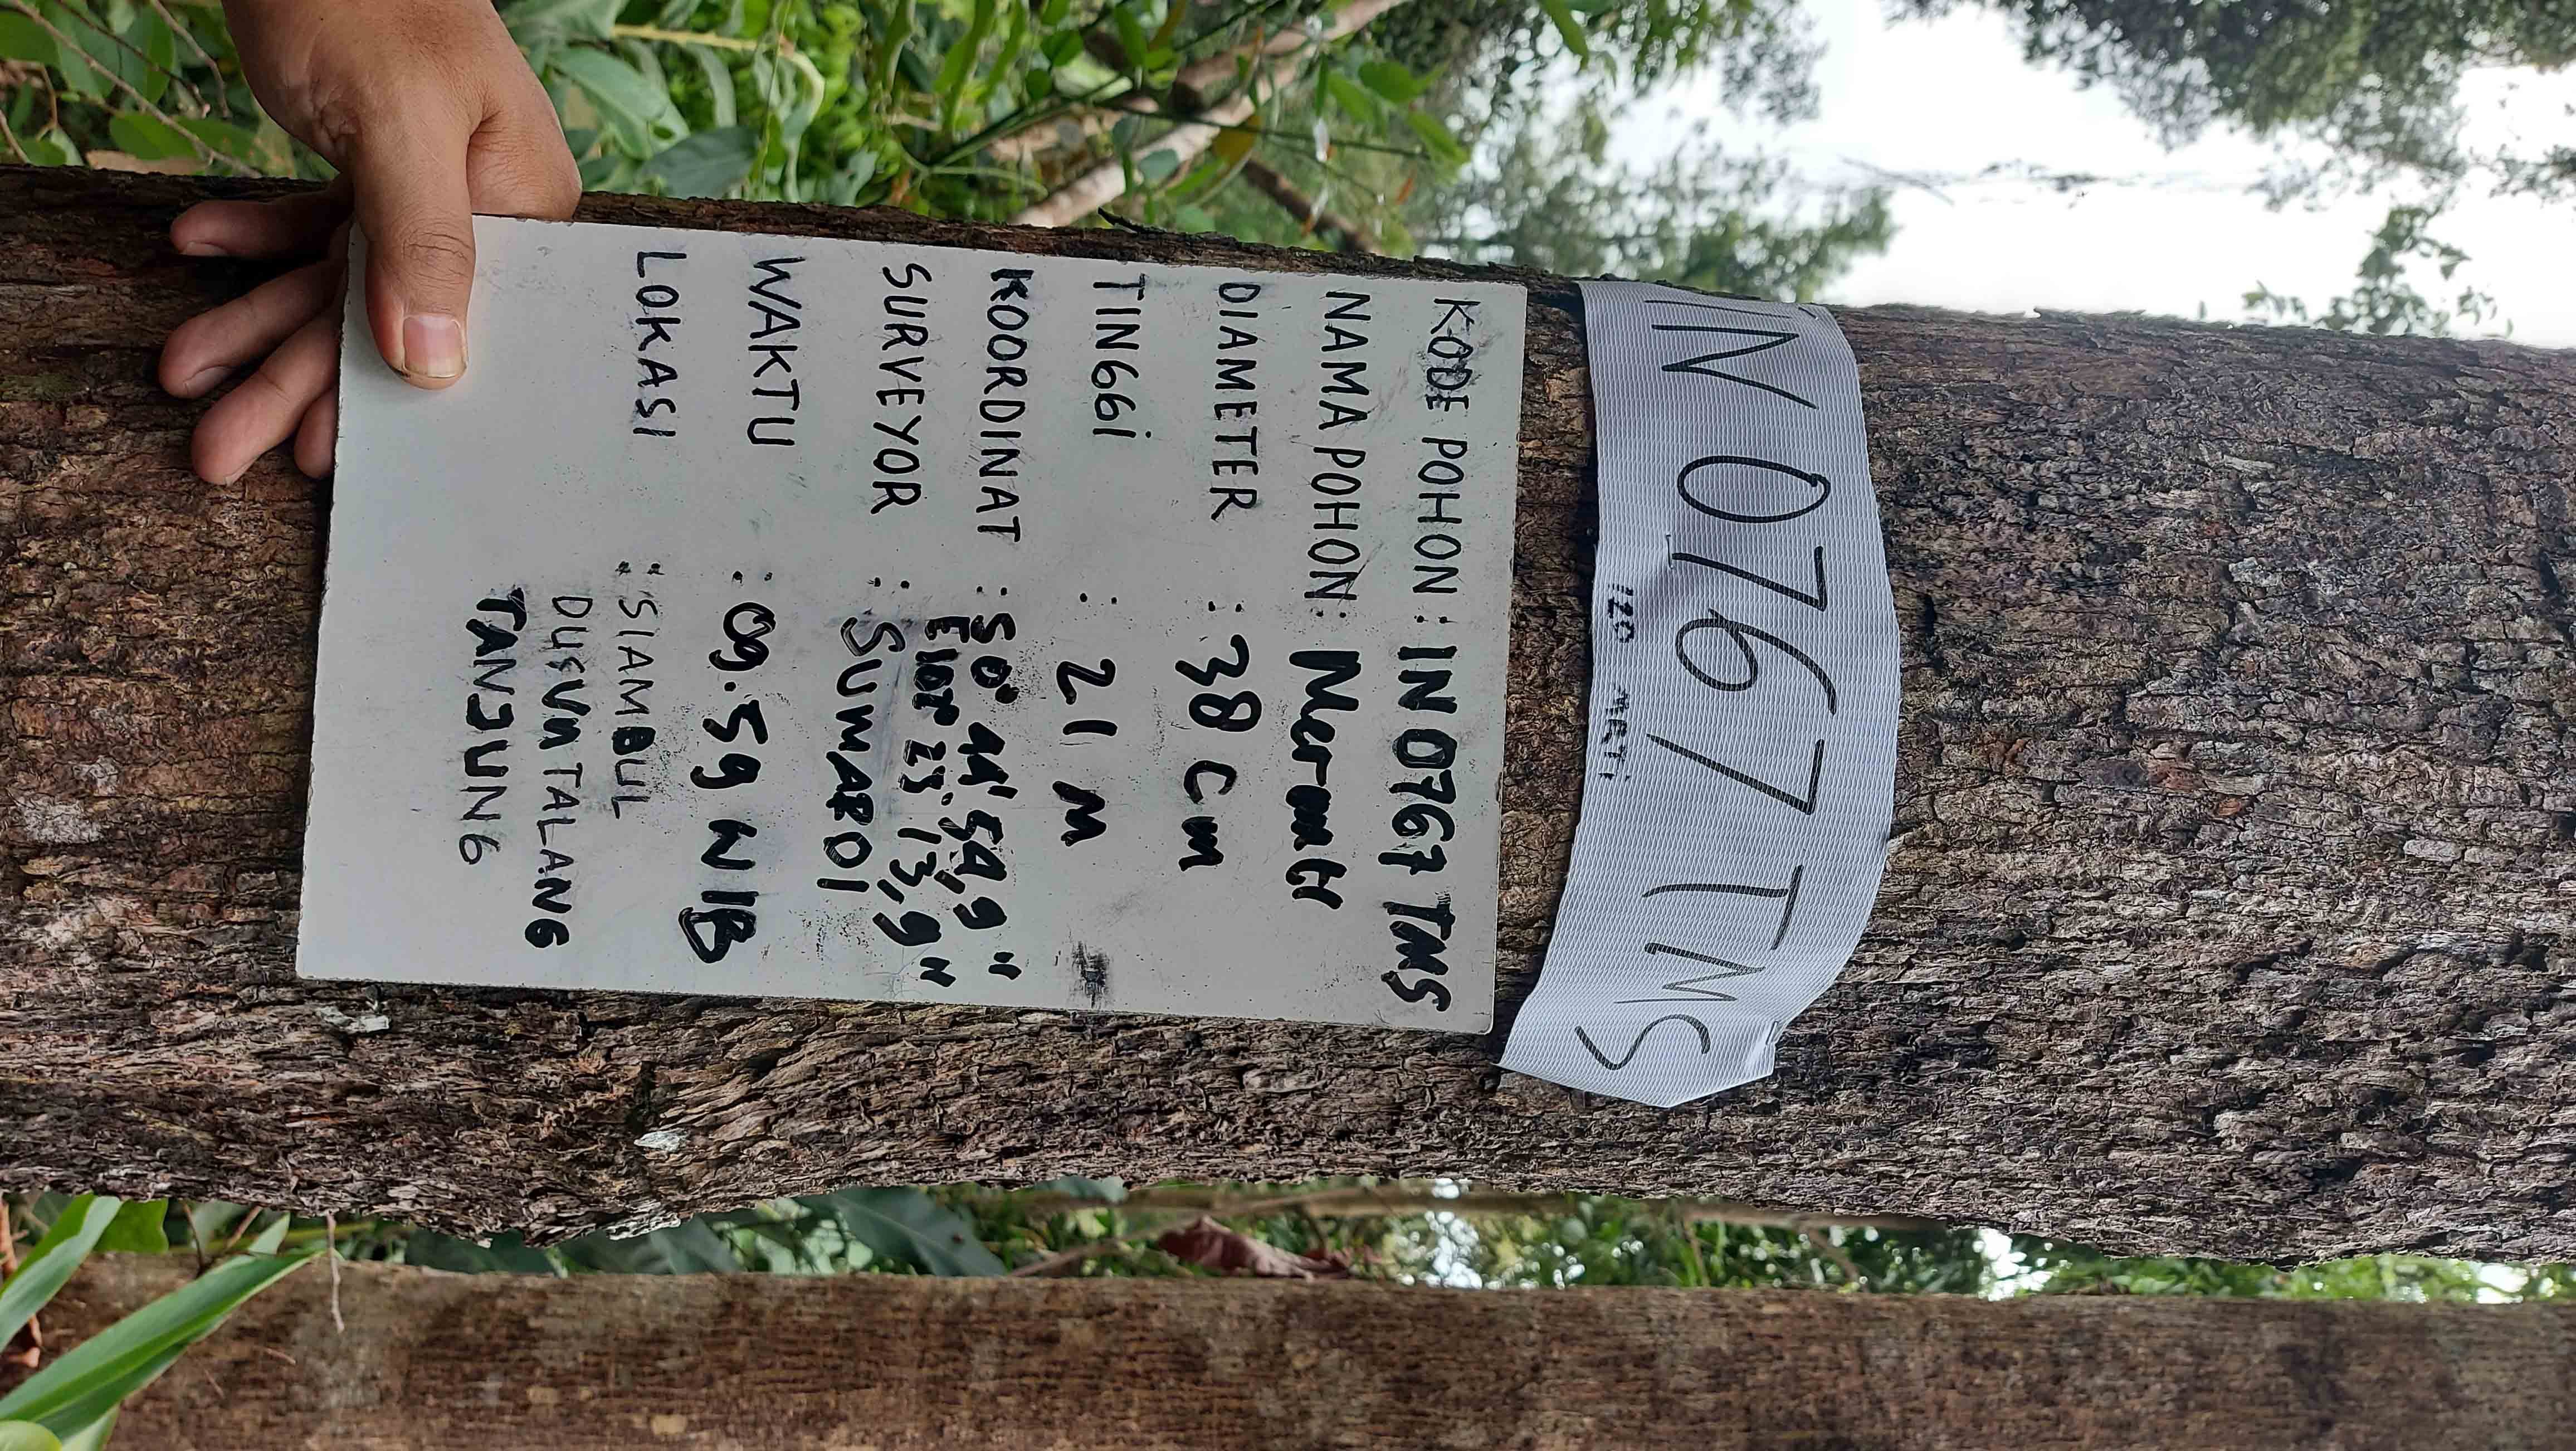 IN 0767 TMS
120 MRTi
KODE POHON : IN 0767 TMS
NAMA POHON : Meranti
DIAMETER : 38 cm
TINGGi : 21 M
KOORDINAT : S 0° 44' 54,9"
E 102° 23' 13,9"
SURVEYOR : SUMARDI
WAKTU : 09.59 WIB
LOKASI : SIAMBUL
DUSUN TALANG
TANJUNG